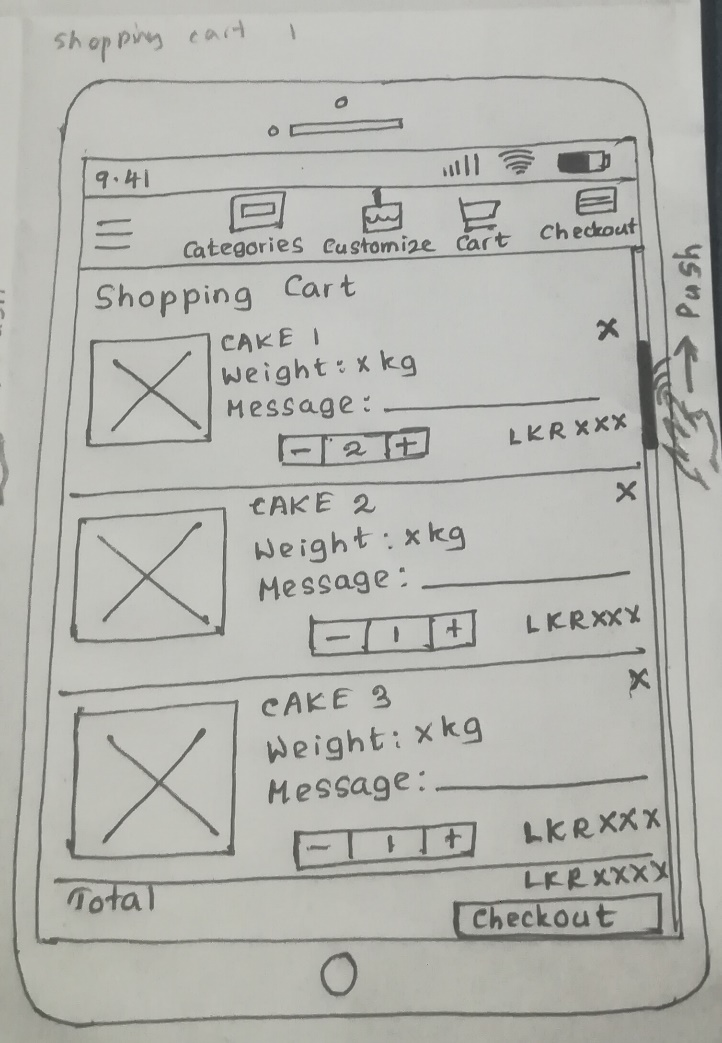 Shopping cart 1
9.41
Categories Customize Cart Checkout
Shopping Cart
CAKE 1 X
Weight: x kg
Message:
- 2 + LKR XXX
Push
CAKE 2 X
Weight: x kg
Message:
- 1 + LKR XXX
CAKE 3 X
Weight: x kg
Message:
- 1 + LKR XXX
Total LKR XXXX
Checkout